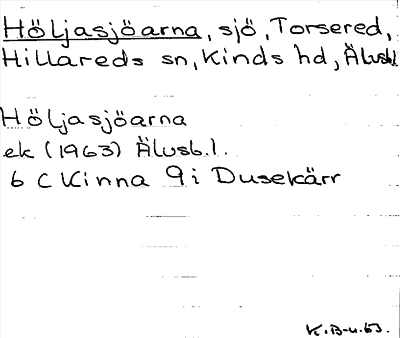 Höljasjöarna, sjö, Torsered,
Hillareds sn, Kinds hd, Älvsb.l
Höljasjöarna
ek (1963) Älvsb.l.
6 C Kinna 9 i Dusekärr
K.B-u.63.